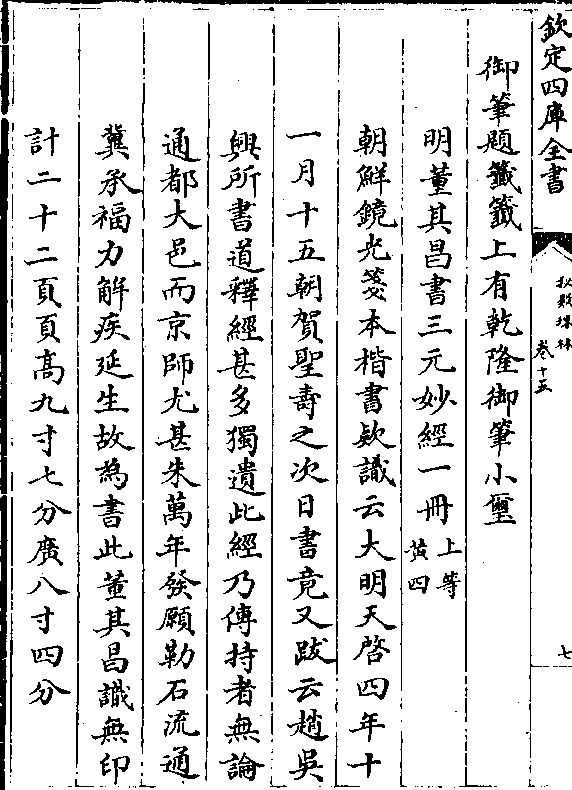 欽定四庫全書
秘殿珠林
卷十五
七
御筆題籤籤上有乾隆御筆小璽
明董其昌書三元妙經一冊上等黃四
朝鮮鏡光箋本楷書欵識云大明天啓四年十
一月十五朝賀聖壽之次日書竟又跋云趙吳
興所書道釋經甚多獨遺此經乃傳持者無論
通都大邑而京師尤甚朱萬年發願勒石流通
冀承福力解疾延生故為書此董其昌識無印
計二十二頁頁高九寸七分廣八寸四分